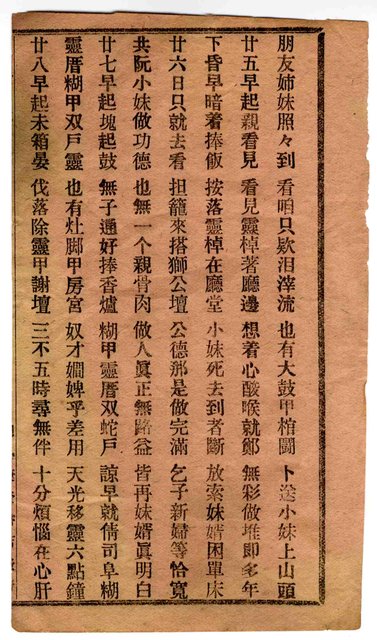 朋友姊妹照々到 看咱只欵泪滓流 也有大鼓甲棺闘 卜送小妹上山頭
廿五早起親看見 看見靈棹著廳邊 想着心酸喉就鄭 無彩做堆即多年
下昏早暗着捧飯 按落靈棹在廳堂 小妹死去到者斷 放索妹婿困單床
廿六日只就去看 担籠來搭獅公壇 公德那是做完滿 乞子新婦等恰寬
共阮小妹做功德 也無一个親骨肉 做人眞正無路益 皆再妹婿眞明白
廿七早起塊起鼓 無子通好捧香爐 糊甲靈厝双蛇戶 諒早就倩司阜糊
靈厝糊甲双戶靈 也有灶脚甲房宮 奴才嫺婢乎差用 天光移靈六點鐘
廿八早起未箱晏 伐落除靈甲謝壇 三不五時尋無伴 十分煩惱在心肝